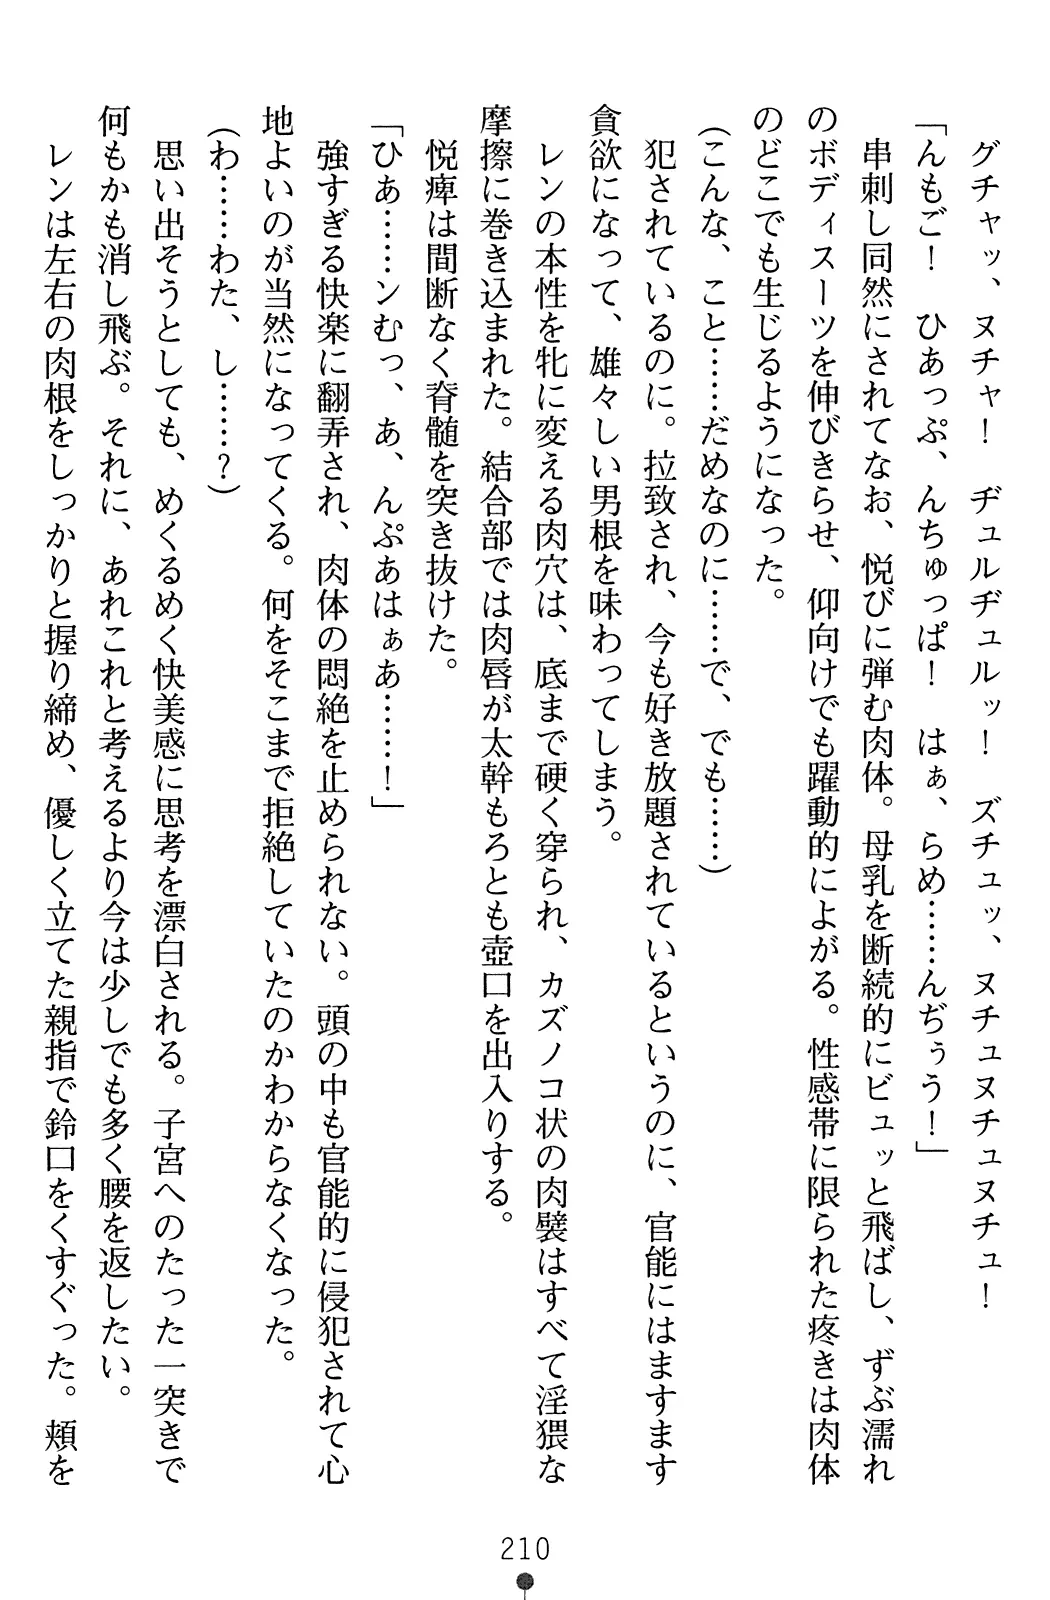 グチャッ、ヌチャ！　ヂュルヂュルッ！　ズチュッ、ヌチュヌチュヌチュ！
「んもご！　ひあっぷ、んちゅっぱ！　はぁ、らめ……んぢぅう！」
串刺し同然にされてなお、悦びに弾む肉体。母乳を断続的にビュッと飛ばし、ずぶ濡れ
のボディスーツを伸びきらせ、仰向けでも躍動的によがる。性感帯に限られた疼きは肉体
のどこでも生じるようになった。
（こんな、こと……だめなのに……で、でも……）
犯されているのに。拉致され、今も好き放題されているというのに、官能にはますます
貪欲になって、雄々しい男根を味わってしまう。
レンの本性を牝に変える肉穴は、底まで硬く穿られ、カズノコ状の肉襞はすべて淫猥な
摩擦に巻き込まれた。結合部では肉唇が太幹もろとも壺口を出入りする。
悦痺は間断なく脊髄を突き抜けた。
「ひあ……ンむっ、あ、んぷあはぁあ……！」
強すぎる快楽に翻弄され、肉体の悶絶を止められない。頭の中も官能的に侵犯されて心
地よいのが当然になってくる。何をそこまで拒絶していたのかわからなくなった。
（わ……わた、し……？）
思い出そうとしても、めくるめく快美感に思考を漂白される。子宮へのたった一突きで
何もかも消し飛ぶ。それに、あれこれと考えるより今は少しでも多く腰を返したい。
レンは左右の肉根をしっかりと握り締め、優しく立てた親指で鈴口をくすぐった。頬を
210